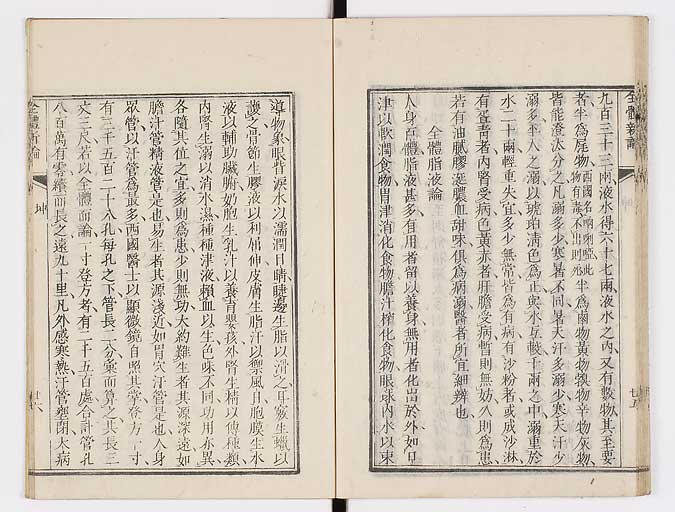 全體新論
九百三十三兩液水得六十七兩液水之內又有數物其至要
者半為尿物西國名唎啊此物有毒不出則死半為鹵物黃物獏物辛物灰物
皆能澄汰分之凡溺多少寒暑不同暑天汗多溺少寒天汗少
溺多平人之溺以琥珀清色為正與水互較千兩之中溺重於
水二十兩輕重失宜多少無常皆為有病有沙粉者或成沙淋
有蛋青者內腎受病色黃赤者肝膽受病暫則無妨久則為患
若有油膩膠涎膿血甜味俱為病溺醫者所宜細辨也
全體脂液論
人身百體脂液甚多有用者留以養身無用者化出於外如口
津以軟潤食物胃津消化食物膽汁榨化食物眼球內水以束
導物象眼胞淚水以濡潤目睛睫邊生脂以滑之耳竅生蠟以
護之骨節生膠液以利屈伸皮膚生脂汗以禦風日胞膜生水
液以輔助臟腑奶胞生乳汁以養育嬰孩外腎生精以傳種類
內腎生溺以消水濕種種津液賴血以生色味不同功用亦異
各隨其位之宜多則為患少則無功大約難生者其源深遠如
膽汁管精液管是也易生者其源淺近如胃穴汗管是也人身
眾管以汗管為最多西國醫士以顯微鏡自照其掌每方一寸
有三千五百二十八孔每孔之下管長二分彙而算之其長三
丈三尺若以全體而論一寸登方者有二千五百處合計管孔
八百萬有零續而長之遠九十里凡外感寒熱汗管壅閉大病
全體新論
坤
廿六